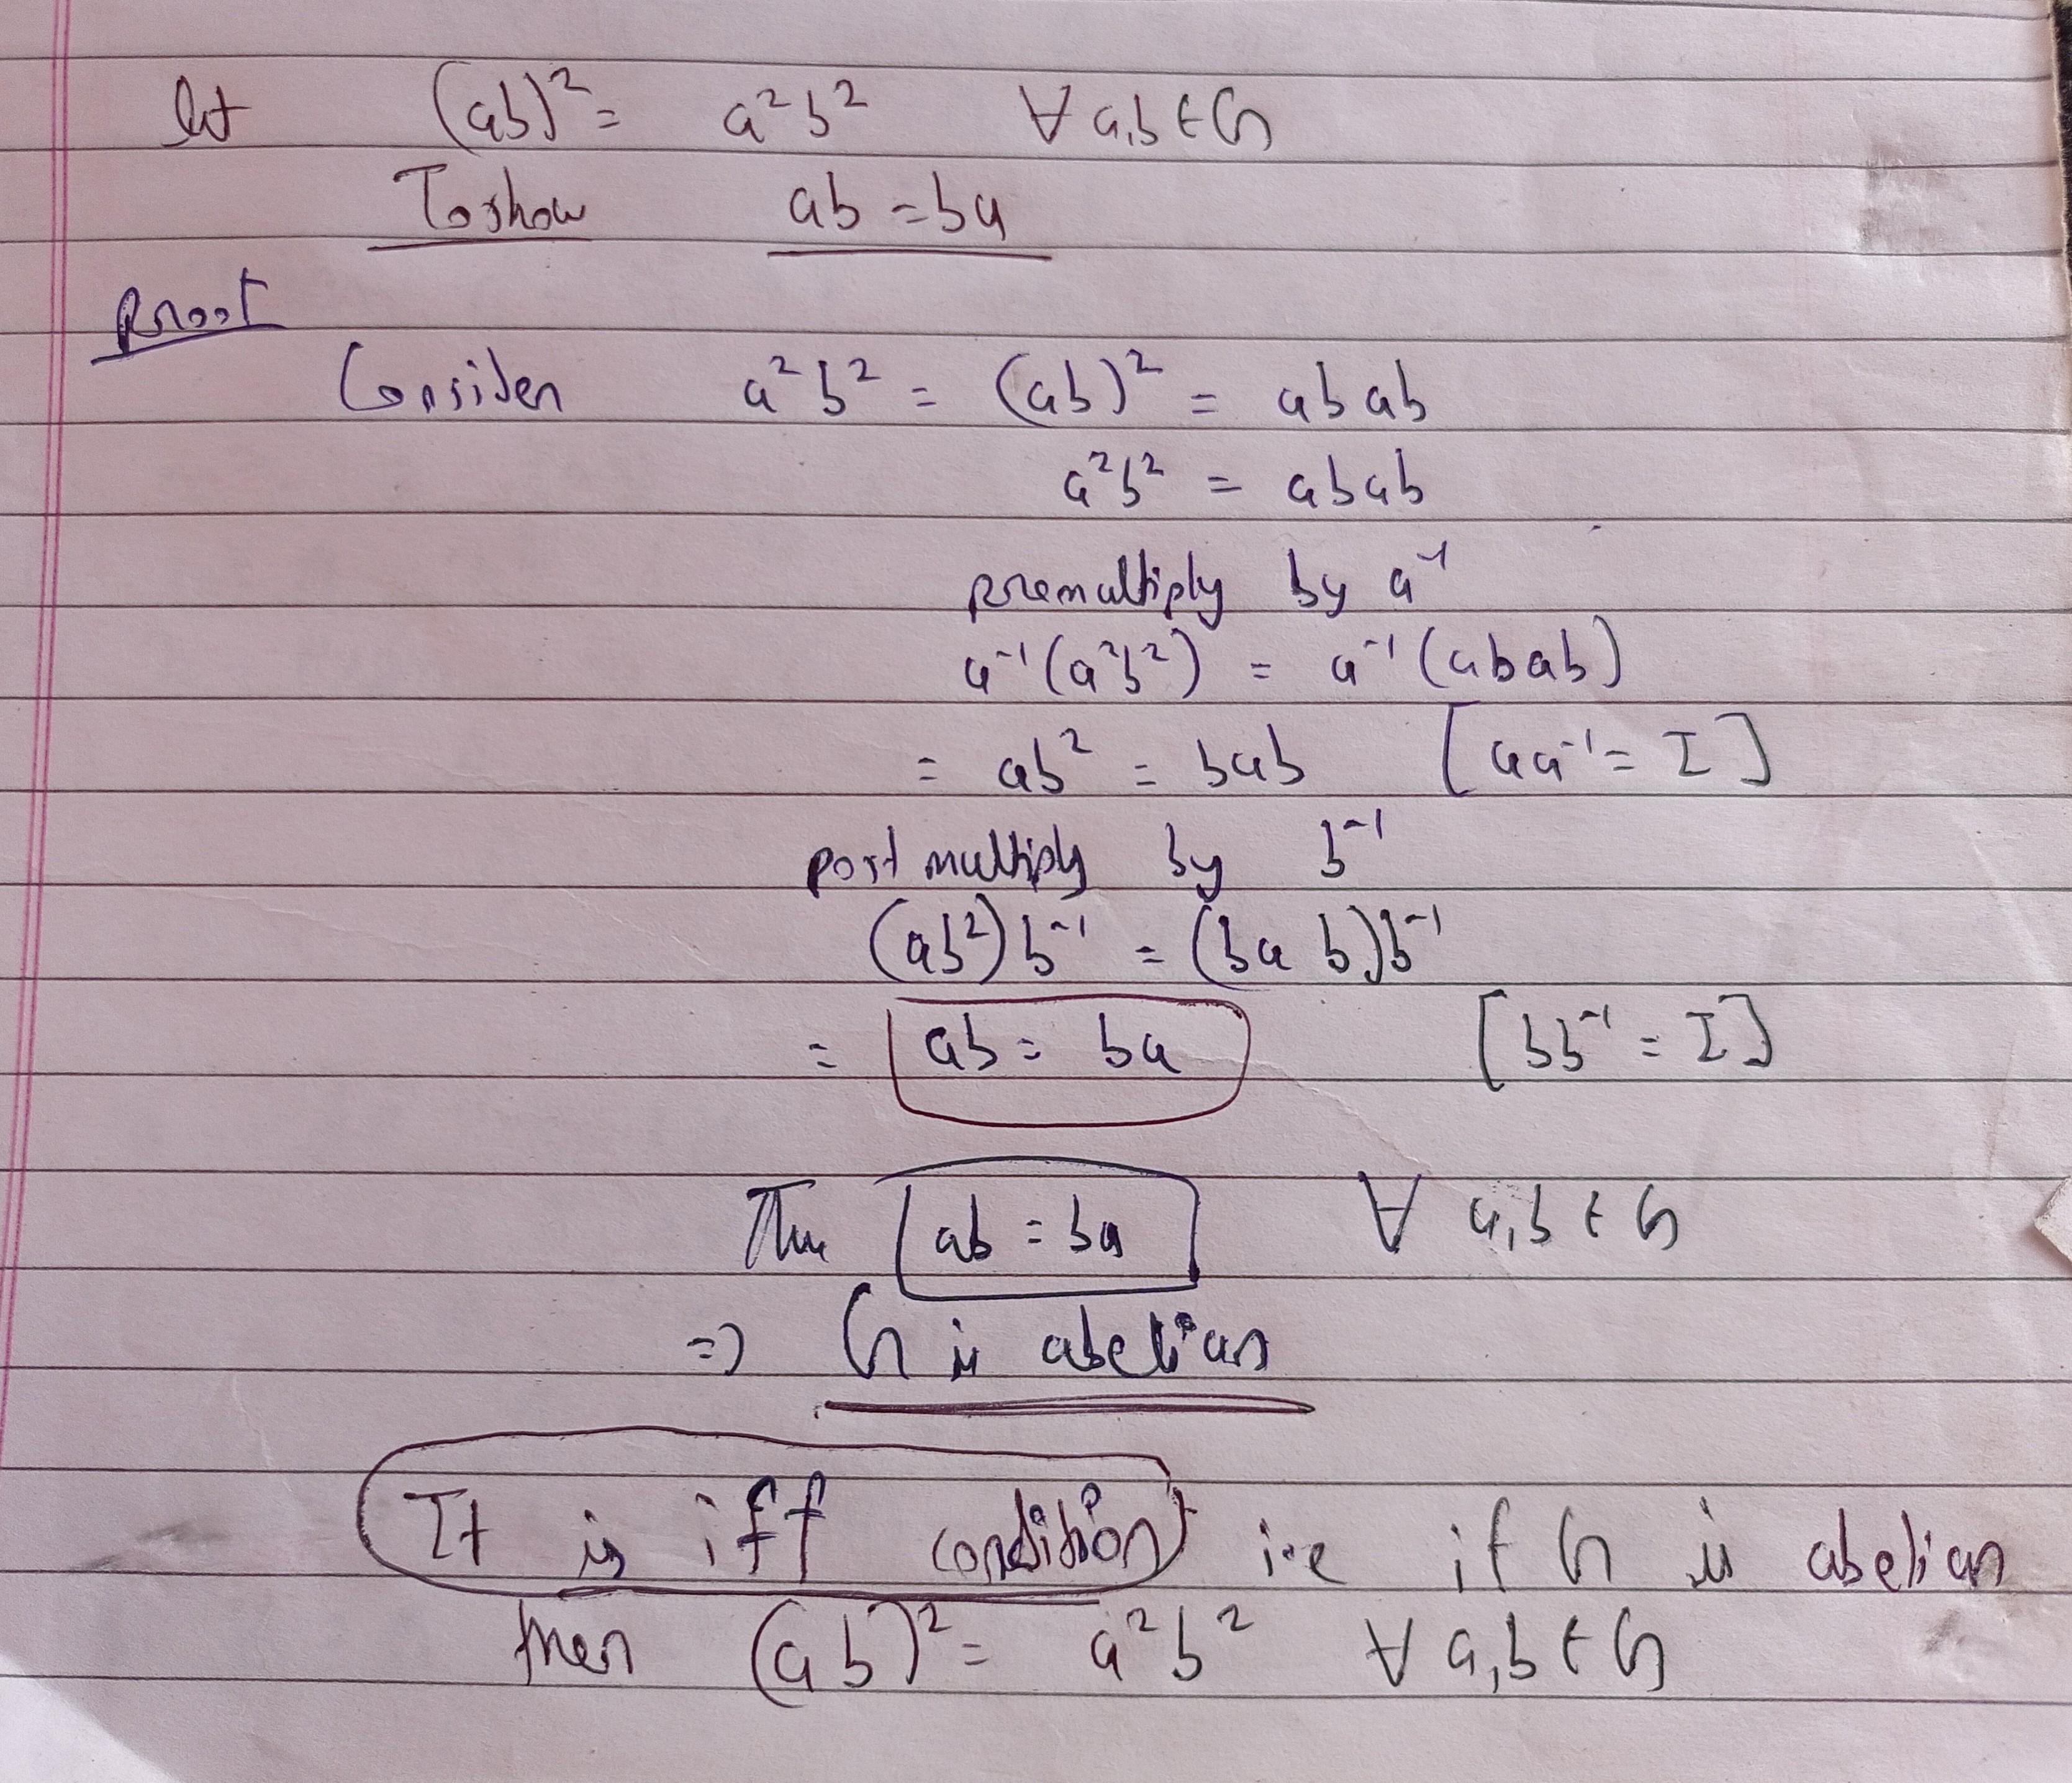 let (ab)² = a²b² ∀ a,b ∈ G
To show ab = ba
Proof
Consider a²b² = (ab)² = abab
a²b² = abab
premultiply by a⁻¹
a⁻¹(a²b²) = a⁻¹(abab)
= ab² = bab [aa⁻¹ = I]
post multiply by b⁻¹
(ab²)b⁻¹ = (bab)b⁻¹
= ab = ba [bb⁻¹ = I]
Thus ab = ba ∀ a,b ∈ G
=> G is abelian
It is iff condition i.e if G is abelian
then (ab)² = a²b² ∀ a,b ∈ G